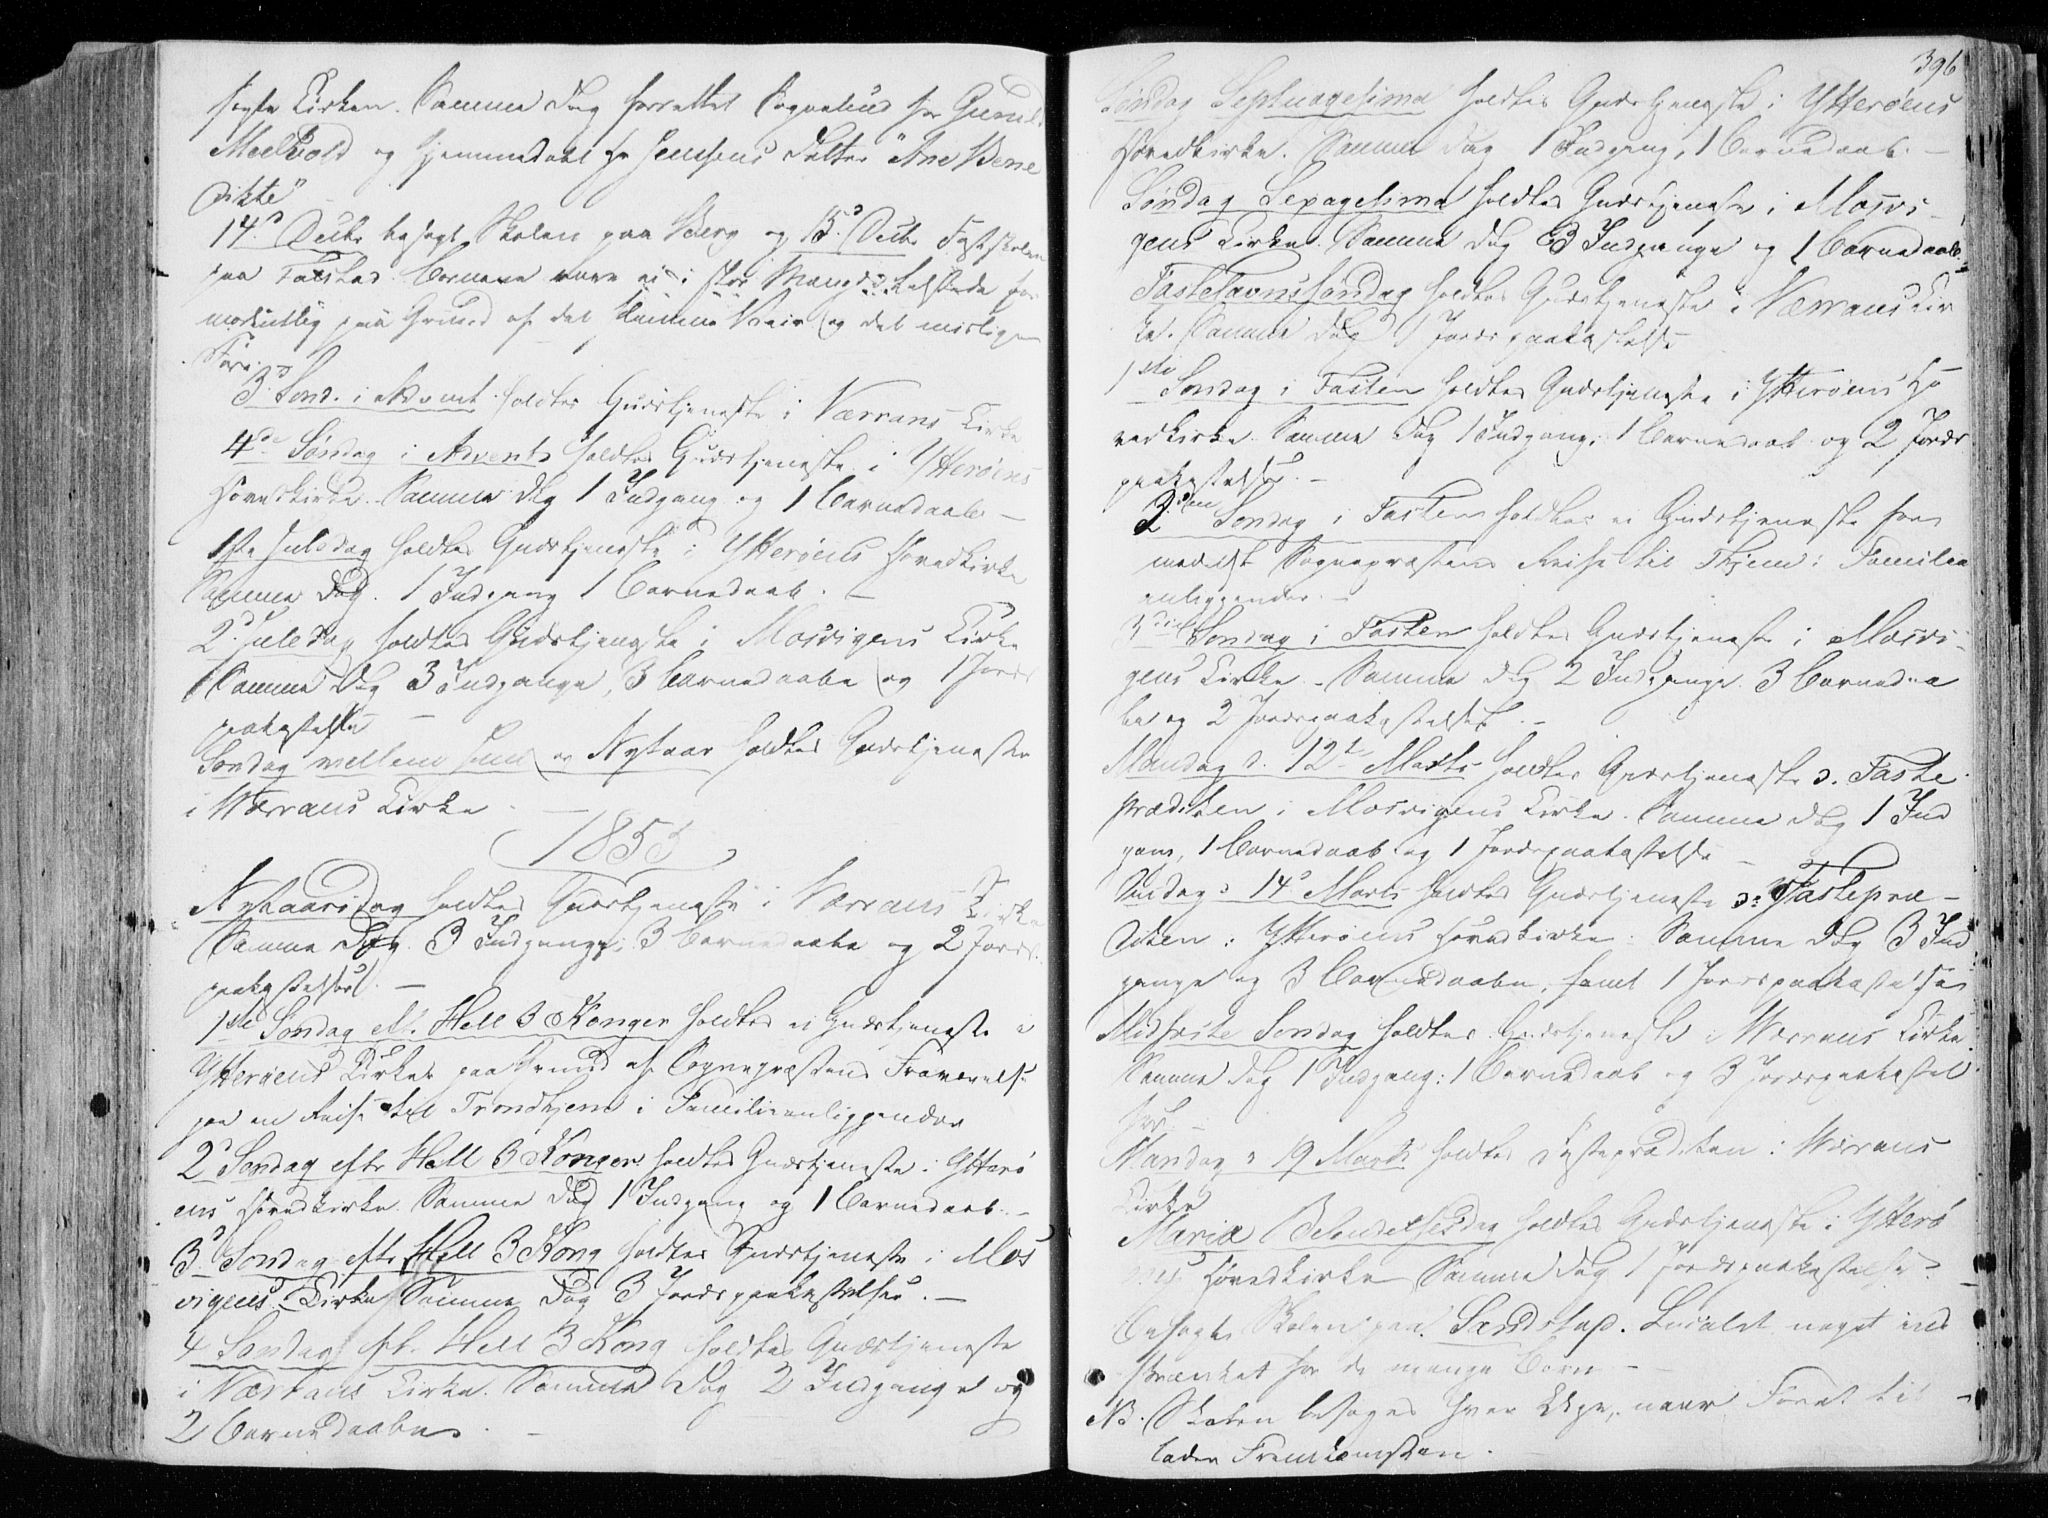 søgte Kirken. Samme Dag forrettet Sognebud for Gunnl.
Meelvold og Hjemmedaab for Jensens Datter "Ane Bene
dikte"
14.d Decbr besøgt Skolen paa Berg og 15.d Decbr Fastskolen
paa Falstad. Børnene vare ei i stor Mængde tilstede for
modentlig paa Grund af det slemme Veir og det mislige
Føre.
3.d Sønd. i Advent holdtes Gudstjeneste i Værrans Kirke
4.de Søndag i Advent holdtes Gudstjeneste i Ytterøens
Hovedkirke. Samme Dag 1 Indgang og 1 Barnedaab. –
1ste Juledag holdtes Gudstjeneste i Ytterøens Hovedkirke
Samme Dag. 1 Indgang 1 Barnedaab. –
2.d Juledag holdtes Gudstjeneste i Mosvigens Kirke
Samme Dag 3 Indgange, 3 Barnedaabe og 1 Jords
paakastelse –
Søndag mellem Juul og Nytaar holdtes Gudstjeneste
i Værrans Kirke –
1855
Nytaarsdag holdtes Gudstjeneste i Værrans Kirke
Samme Dag. 3 Indgange, 3 Barnedaabe og 2 Jords
paakastelser. –
1ste Søndag eft. Hell 3 Konger holdtes ei Gudstjeneste i
Ytterøens Kirke paa Grund af Sognepræstens Fraværelse
paa en Reise til Trondhjem i Familieanliggender
2d Søndag efter Hell 3 Konger holdtes Gudstjeneste i Ytterø
ens Hovedkirke. Samme Dag 1 Indgang og 1 Barnedaab. –
3d Søndag efter Hell 3 Kong holdtes Gudstjeneste i Mos
vigens Kirke Samme Dag 3 Jordspaakastelser. –
4 Søndag eft. Hell 3 Kong holdtes Gudstjeneste
i Værrans Kirke. Samme Dag 2 Indgange og
2 Barnedaabe. –
396
Søndag Septuagesima holdtes Gudstjeneste i Ytterøens
Hovedkirke. Samme Dag 1 Indgang, 1 Barnedaab. –
Søndag Sexagesima holdtes Gudstjeneste i Mosvi-
gens Kirke. Samme Dag 3 Indgange og 1 Barnedaab.
Fastelavnssøndag holdtes Gudstjeneste i Værrans Kir
ke. Samme Dag 1 Jordspaakastelse
1ste Søndag i Fasten holdtes Gudstjeneste i Ytterøens Ho
vedkirke. Samme Dag 1 Indgang, 1 Barnedaab og 2 Jords
paakastelser. –
2.den Søndag i Fasten holdtes ei Gudstjeneste for
medelst Sognepræstens Reise til Thjem i Familie
anliggender. –
3die Søndag i Fasten holdtes Gudstjeneste i Mosvi-
gens Kirke. – Samme Dag 2 Indgange. 3 Barnedaa
be og 2 Jordspaakastelser. –
Mandag d. 12te Marts holdtes Gudstjeneste o. Faste
prædiken i Mosvigens Kirke. Samme Dag 1 Ind
gang, 1 Barnedaab og 1 Jordspaakastelse –
Onsdag d 14d Marts holdtes Gudstjeneste o: Fastepræ-
diken i Ytterøens Hovedkirke. Samme Dag 3 Ind
gange og 3 Barnedaabe, samt 1 Jordspaakastelse
Midfaste Søndag holdtes Gudstjeneste i Værrans Kirke
Samme Dag 1 Indgang, 1 Barnedaab og 3 Jordspaakastel
ser. –
Mandag d 19 Marts holdtes Fasteprædiken i Værrans
Kirke
Mariæ Bebudelsesdag holdtes Gudstjeneste i Ytterø
ens Hovedkirke Samme Dag 1 Jordspaakastelse.
Besøgt Skolen paa Sandstap. Localet noget ind
skrænket for de mange Børn –
NB. Skolen besøges hver Uge, naar Føret til-
lader Fremkomsten.